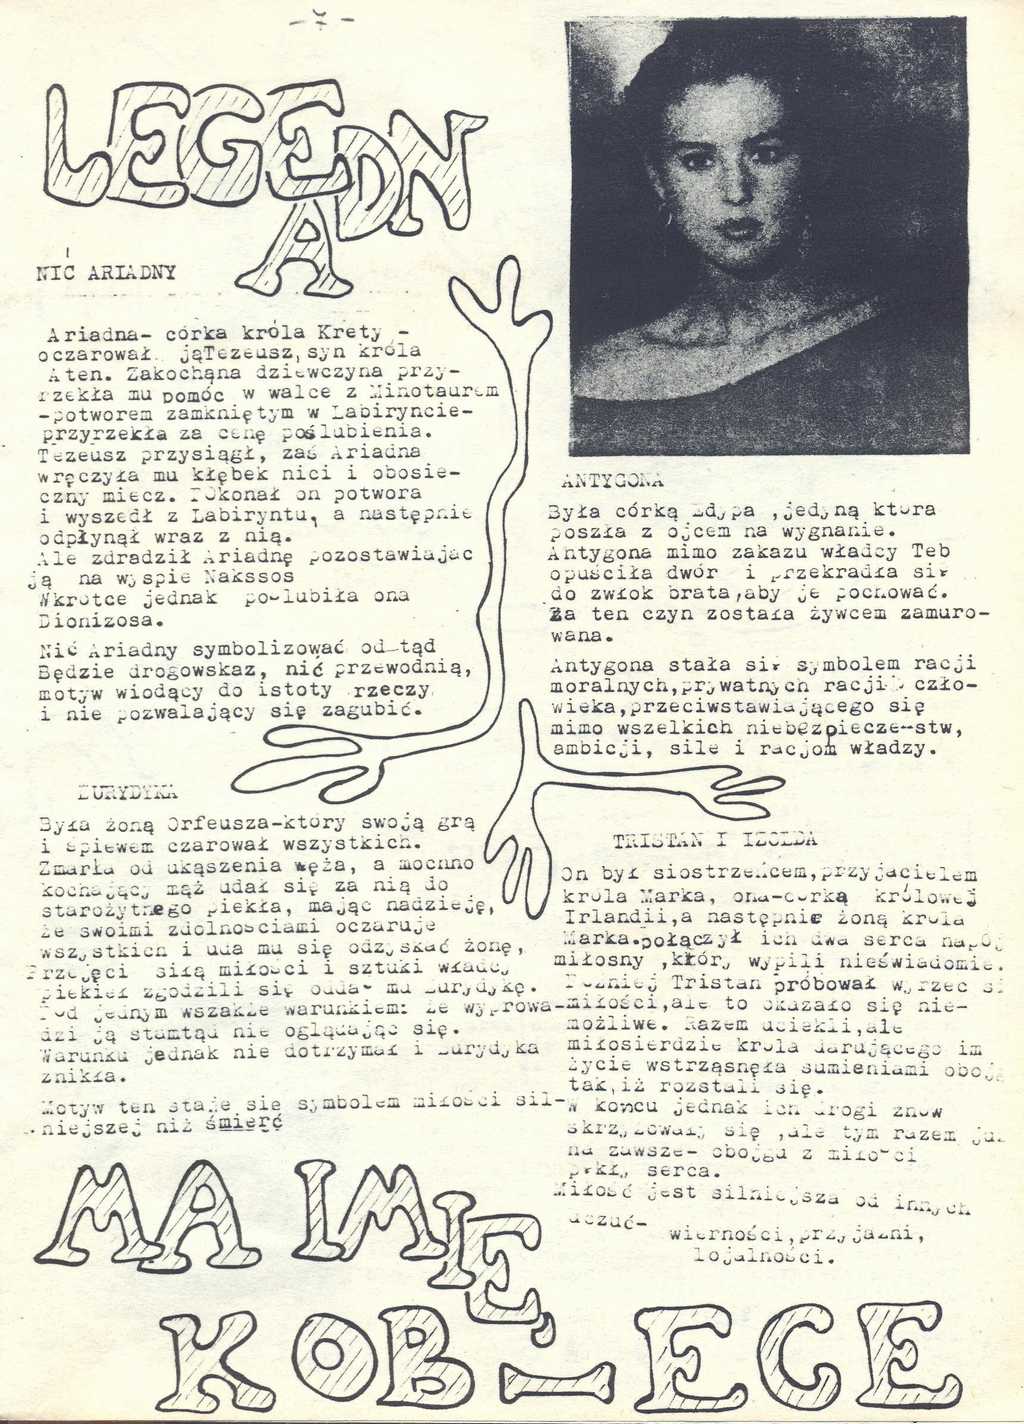 - 7 -
LEGENDA
NIĆ ARIADNY
Ariadna- córka króla Krety -
oczarował jąTezeusz,syn króla
Aten. Zakochana dziewczyna przy-
rzekła mu pomóc w walce z Minotaurem
-potworem zamkniętym w Labiryncie-
przyrzekła za cenę poślubienia.
Tezeusz przysiągł, zaś Ariadna
wręczyła mu kłębek nici i obosie-
czny miecz. POkonał on potwora
i wyszedł z Labiryntu, a następnie
odpłynął wraz z nią.
Ale zdradził Ariadnę pozostawiając
ją na wyspie Nakssos
Wkrótce jednak poślubiła ona
Dionizosa.
Nić Ariadny symbolizować od tąd
Będzie drogowskaz, nić przewodnią,
motyw wiodący do istoty rzeczy
i nie pozwalający się zagubić.
EURYDYKA
Była żoną Orfeusza-który swoją grą
i śpiewem czarował wszystkich.
Zmarła od ukąszenia węża, a mocnno
kochający mąż udał się za nią do
starożytnego piekła, mając nadzieję,
że swoimi zdolnościami oczaruje
wszystkich i uda mu się odzyskać żonę,
Przejęci siłą miłości i sztuki władcy
piekieł zgodzili się oddać mu Eurydykę.
Pod jednym wszakże warunkiem: że wyprowa-
dzi ją stamtąd nie oglądając się.
Warunku jednak nie dotrzymał i Eurydyka
znikła.
Motyw ten staje się symbolem miłości sil-
niejszej niż śmierć
ANTYGONA
Była córką Edypa ,jedyną która
poszła z ojcem na wygnanie.
Antygona mimo zakazu władcy Teb
opuściła dwór i przekradła się
do zwłok brata,aby je pochować.
Za ten czyn została żywcem zamuro-
wana.
Antygona stała się symbolem racji
moralnych,prywatnych racji czło-
wieka,przeciwstawiającego się
mimo wszelkich niebezpiecze-stw,
ambicji, sile i racjom władzy.
TRISTAN I IZOLDA
On był siostrzeńcem,przyjacielem
króla Marka, ona-córką królowej
Irlandii,a następnie żoną króla
Marka.połączył ich dwa serca napój
miłosny ,który wypili nieświadomie.
Później Tristan próbował wyrzec si
miłości,ale to okazało się nie-
możliwe. Razem uciekli,ale
miłosierdzie króla darującego im
życie wstrząsnęła sumieniami obojg
tak,iż rozstali się.
W końcu jednak ich drogi znów
skrzyżowały się ,ale tym razem już
na zawsze- obojgu z miłości
pękły serca.
Miłość jest silniejsza od innych
uczuć- wierności,przyjaźni,
lojalności.
MA IMIĘ
KOBIECE